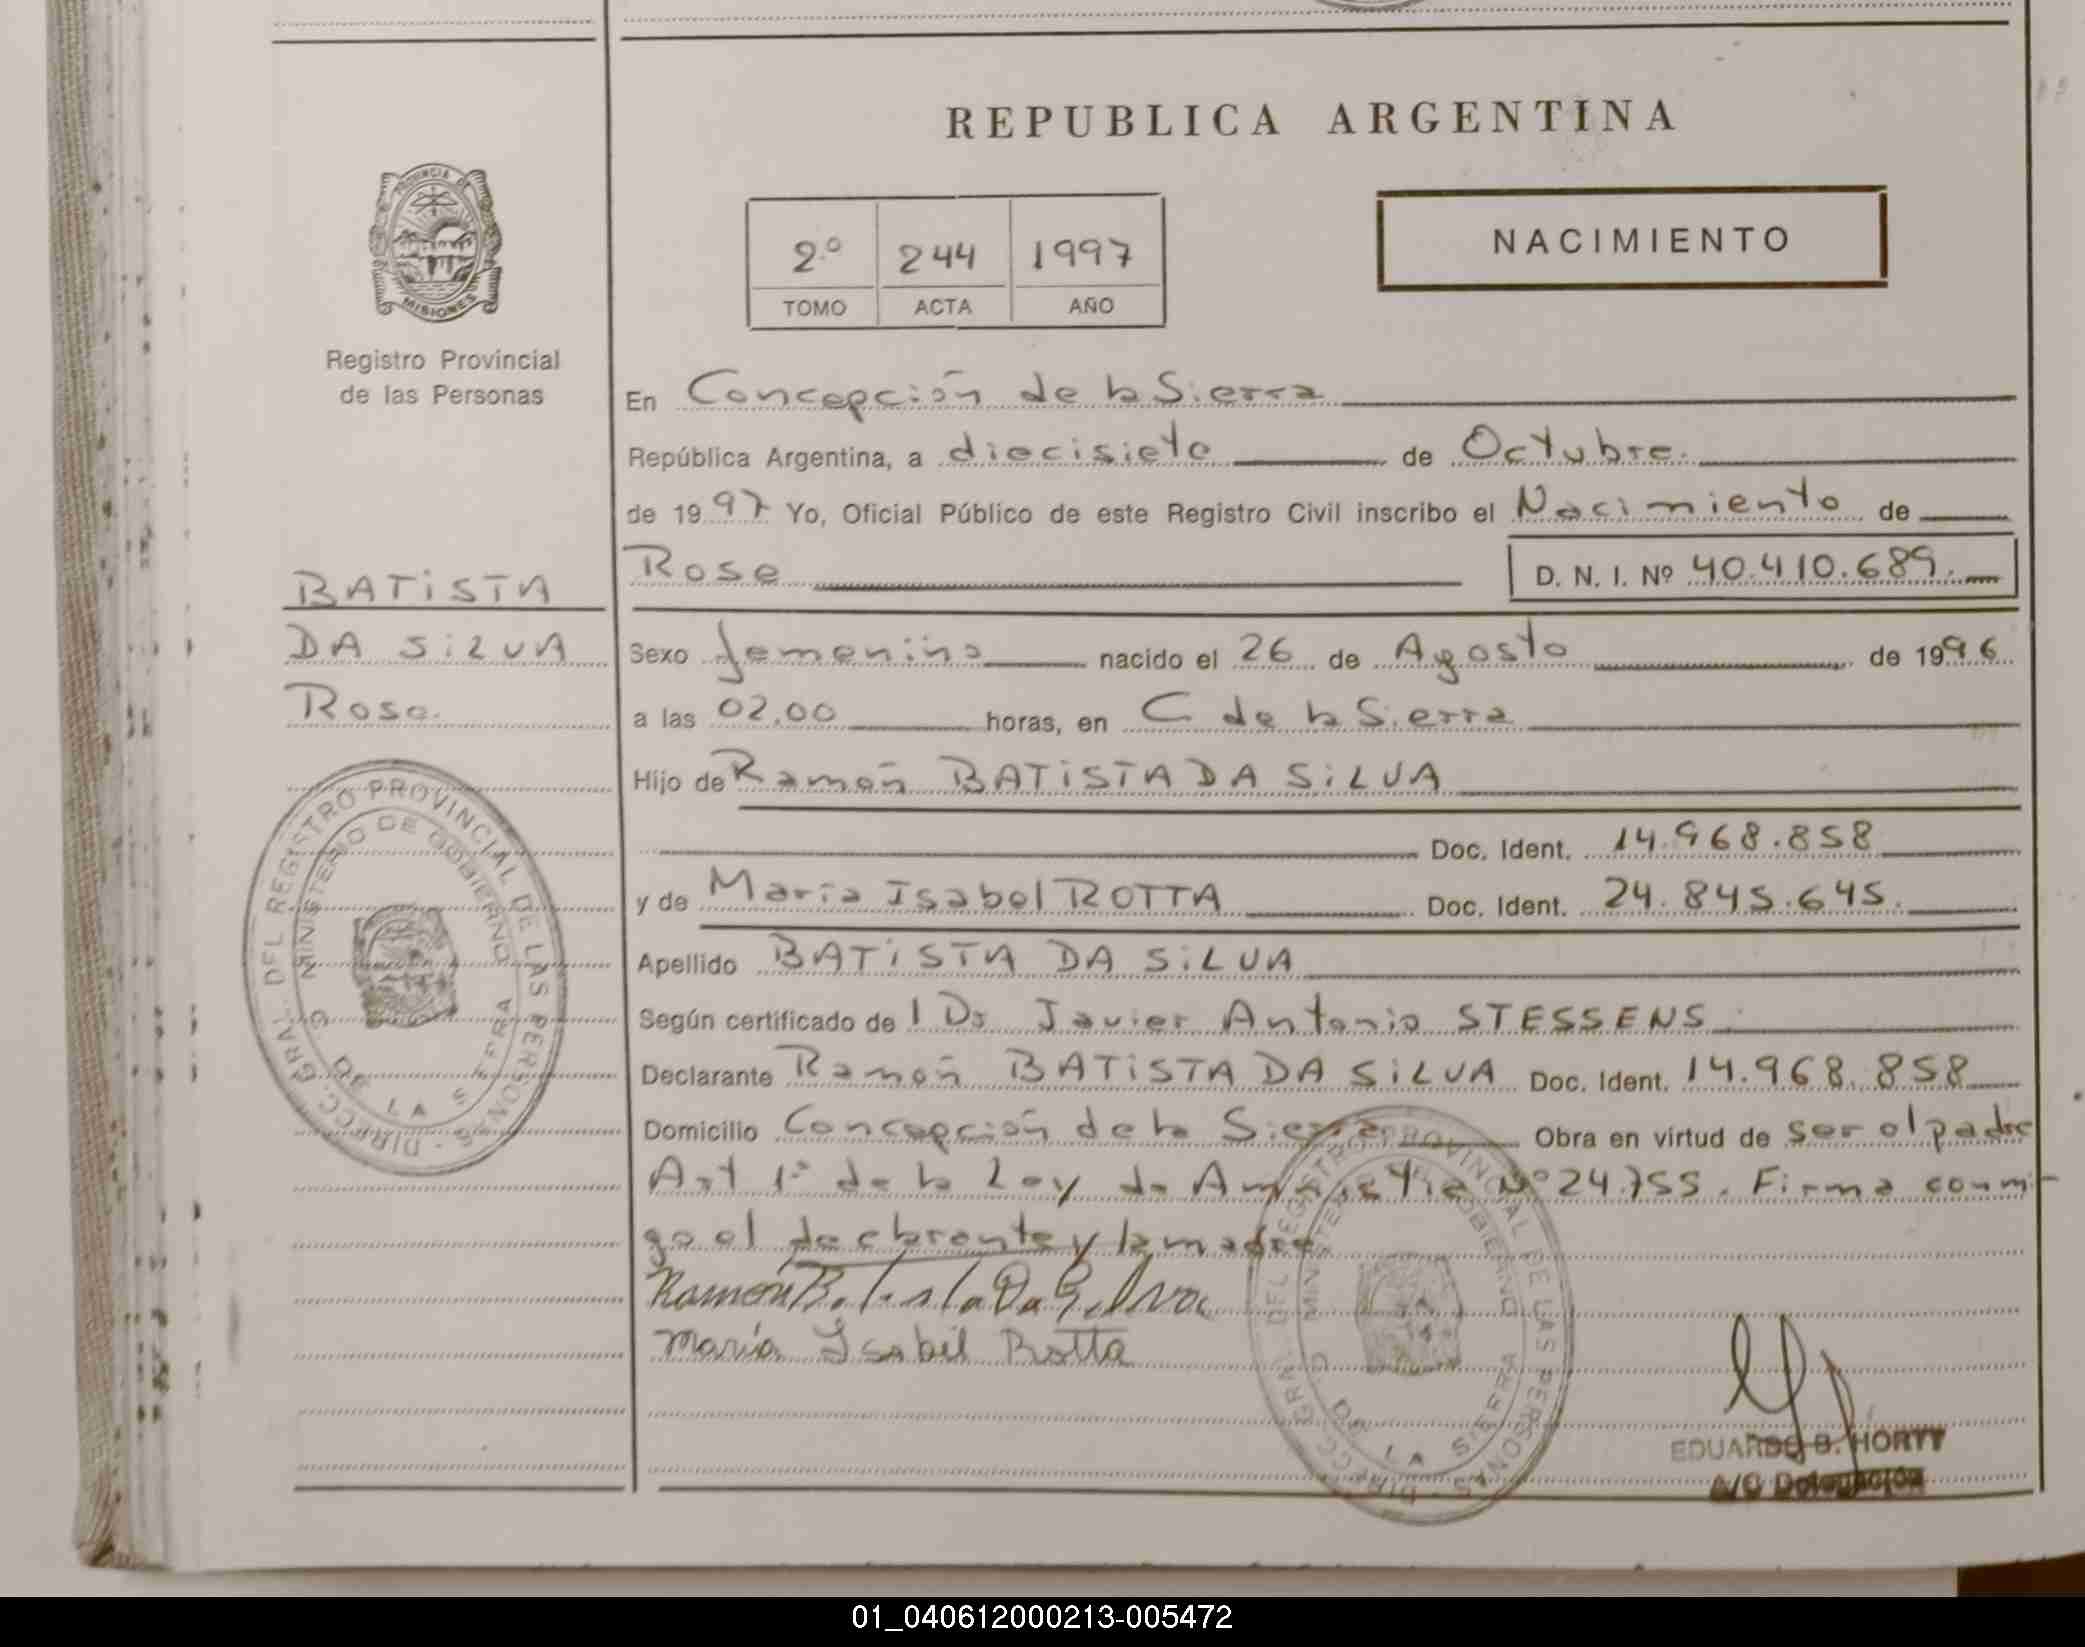 REPUBLICA ARGENTINA
PROVINCIA DE MISIONES
Registro Provincial
de las Personas
2º 244 1997
TOMO ACTA AÑO
NACIMIENTO
En Concepción de la Sierra
República Argentina, a diecisiete de Octubre
de 1997 Yo, Oficial Público de este Registro Civil inscribo el Nacimiento de
Rosa D. N. I. Nº 40.410.689.
BATISTA
DA SILVA
Rosa.
Sexo femenino nacido el 26 de Agosto de 1996
a las 02.00 horas, en C. de la Sierra
Hijo de Ramón BATISTA DA SILVA
Doc. Ident. 14.968.858
y de María Isabel ROTTA Doc. Ident. 24.845.645.
Apellido BATISTA DA SILVA
Según certificado de 1 Dr Javier Antonio STESSENS
Declarante Ramón BATISTA DA SILVA Doc. Ident. 14.968.858
Domicilio Concepción de la Sierra Obra en virtud de ser el padre
Art 1º de la Ley de Amnistía Nº 24.755. Firma conmi-
go el declarante y la madre
Ramón Batista Da Silva
María Isabel Rotta
DIRECC. GRAL. DEL REGISTRO PROVINCIAL DE LAS PERSONAS
MINISTERIO DE GOBIERNO
C. DE LA SIERRA
DIRECC. GRAL. DEL REGISTRO PROVINCIAL DE LAS PERSONAS
MINISTERIO DE GOBIERNO
C. DE LA SIERRA
EDUARDO B. HORTT
A/C Delegación
01_040612000213-005472